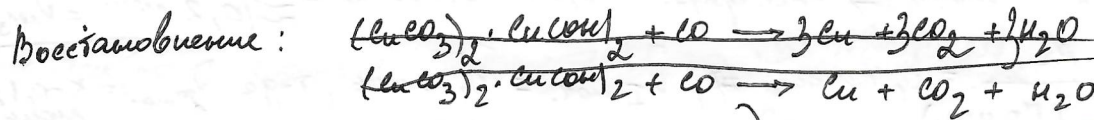 Восстановление : (CuCO3)2 · Cu(OH)2 + CO → 3Cu + 3CO2 + 3H2O
(CuCO3)2 · Cu(OH)2 + CO → Cu + CO2 + H2O